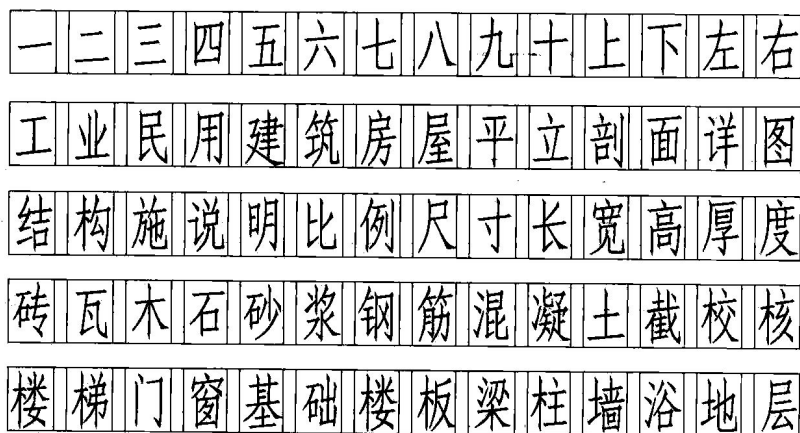 一二三四五六七八九十上下左右
工业民用建筑房屋平立剖面详图
结构施说明比例尺寸长宽高厚度
砖瓦木石砂浆钢筋混凝土截校核
楼梯门窗基础楼板梁柱墙浴地层